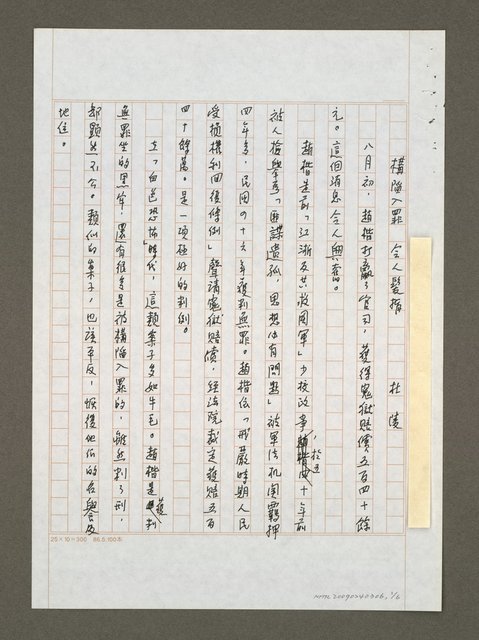 構陷入罪 令人髮指 杜陵
八月初,趙楷打贏了官司,獲得冤獄賠償五百四十餘
元。這個消息令人興奮。
趙楷是前「江浙反共救國軍」少校政幹,於五十年前
被人檢舉「匪諜遺孤,思想有問題」被軍法機關羈押
四年多,民國四十六年獲判無罪。趙楷依「戒嚴時期人民
受損權利回復條例」聲請冤獄賠償,經法院裁定獲賠五百
四十餘萬。是一項極好的判例。
在「白色恐怖」時代,這類案子多如牛毛。趙楷是獲判
無罪坐的黑牢,還有很多是被構陷入罪的,雖然判了刑,
卻顯然不公。類似的案子,也該平反,恢復他們的名譽及
地位。
25×10=300 86.6.100本
NMTL20090240306, 1/6